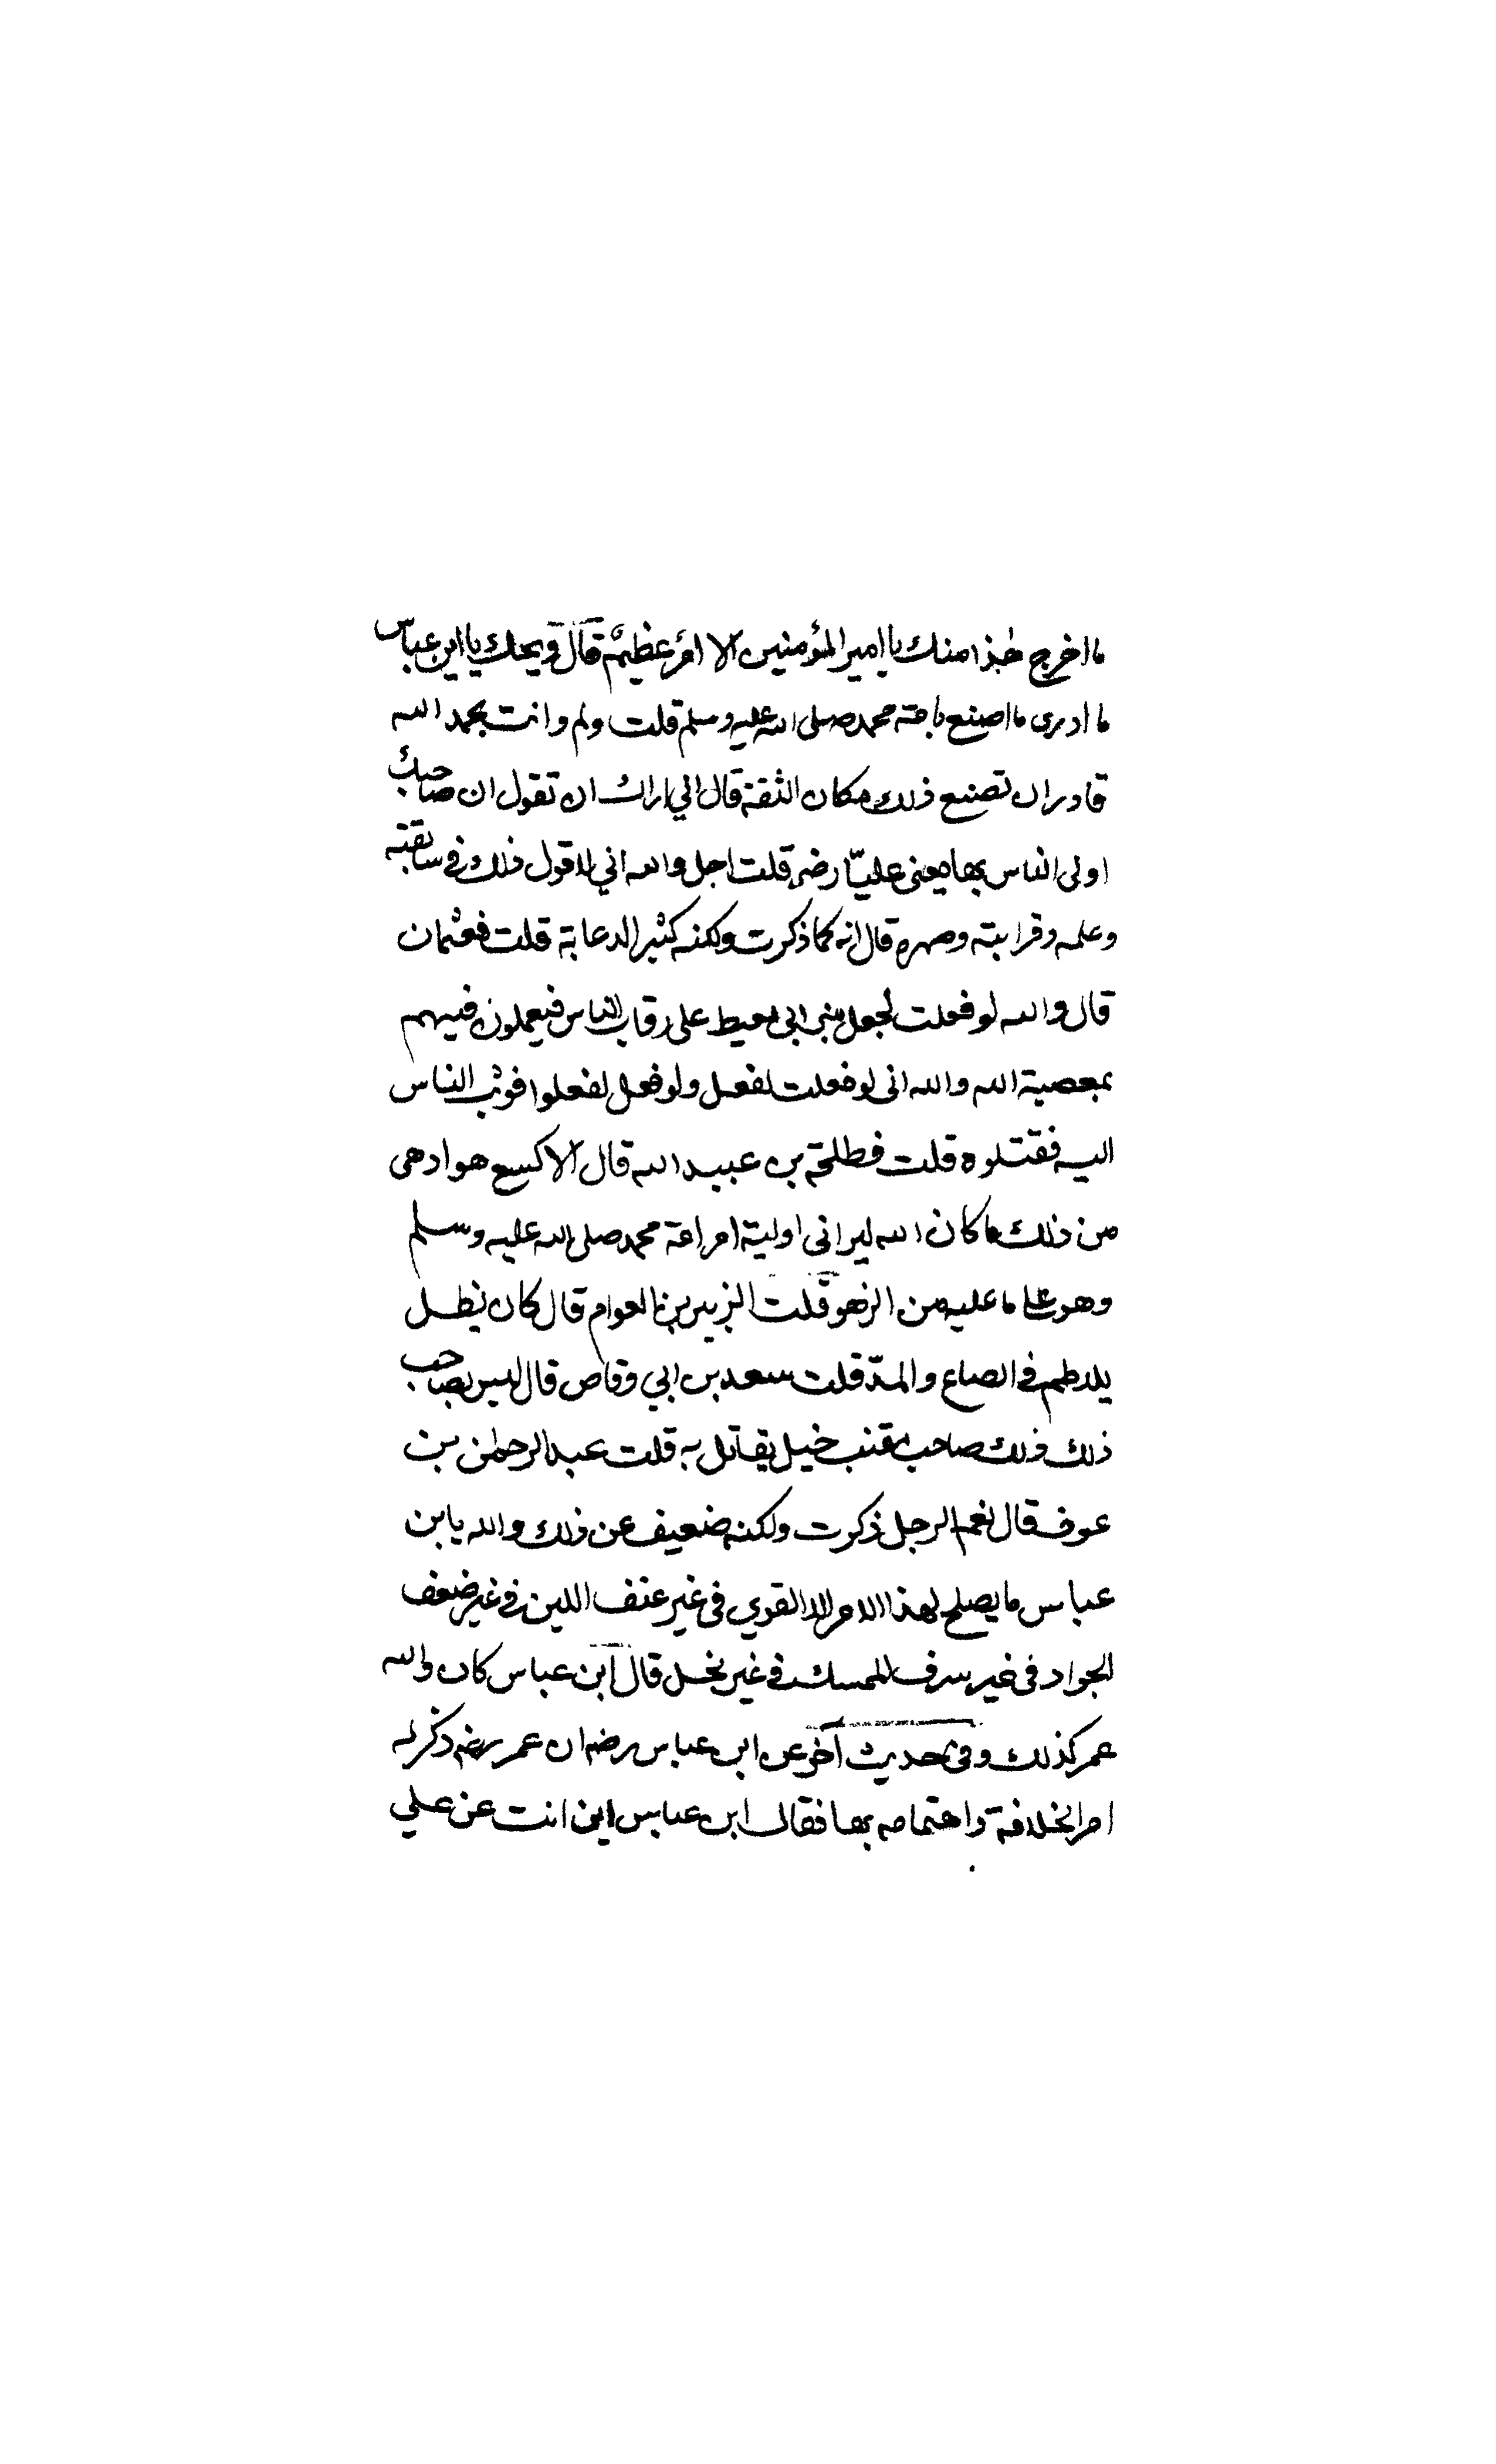 ما اخرج هذا منك يا امير المؤمنين الا امر عظيم قال ويحك يا ابن عباس
ما ادرى ما اصنع بامة محمد صلى الله عليه وسلم قلت ولم وانت بحمد الله
قادر ان تصنع ذلك مكان الثقة قال اني اراك ان تقول ان صاحبك
اولى الناس بها يعنى عليّا رضه قلت اجل والله اني لاقول ذلك في سابقته
وعلمه وقرابته وصهره قال انه كما ذكرت ولكنه كثير الدعابة قلت فعثمان
قال والله لو فعلت لجعل بنى ابى معيط على رقاب الناس فيعملون فيهم
بمعصية الله والله انى لو فعلت لفعل ولو فعل لفعلوا فوثب الناس
اليه فقتلوه قلت فطلحة بن عبيد الله قال الاكسع هو ادهى
من ذلك ما كان الله ليرانى اوليته امر امة محمد صلى الله عليه وسلم
وهو على ما عليه من الزهو قلت الزبير بن العوام قال كان يظل
يلاطم في الصاع والمدّ قلت سعد بن ابي وقاص قال ليس بصاحب
ذلك ذلك صاحب مقنب خيل يقاتل به قلت عبد الرحمٰن بن
عوف قال نعم الرجل ذكرت ولكنه ضعيف عن ذلك والله يابن
عباس ما يصلح لهذا الامر الا القوي في غير عنف اللين في غير ضعف
الجواد فى غير سرف الممسك في غير بخل قال ابن عباس كان والله
عمر كذلك وفى حديث آخر عن ابن عباس رضه ان عمر رضه ذكر له
امر الخلافة واهتمامه بها فقال ابن عباس اين انت عن علي